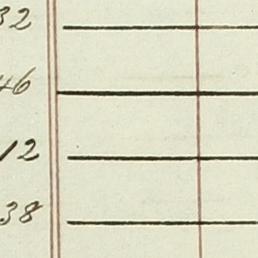 32
46
12
38